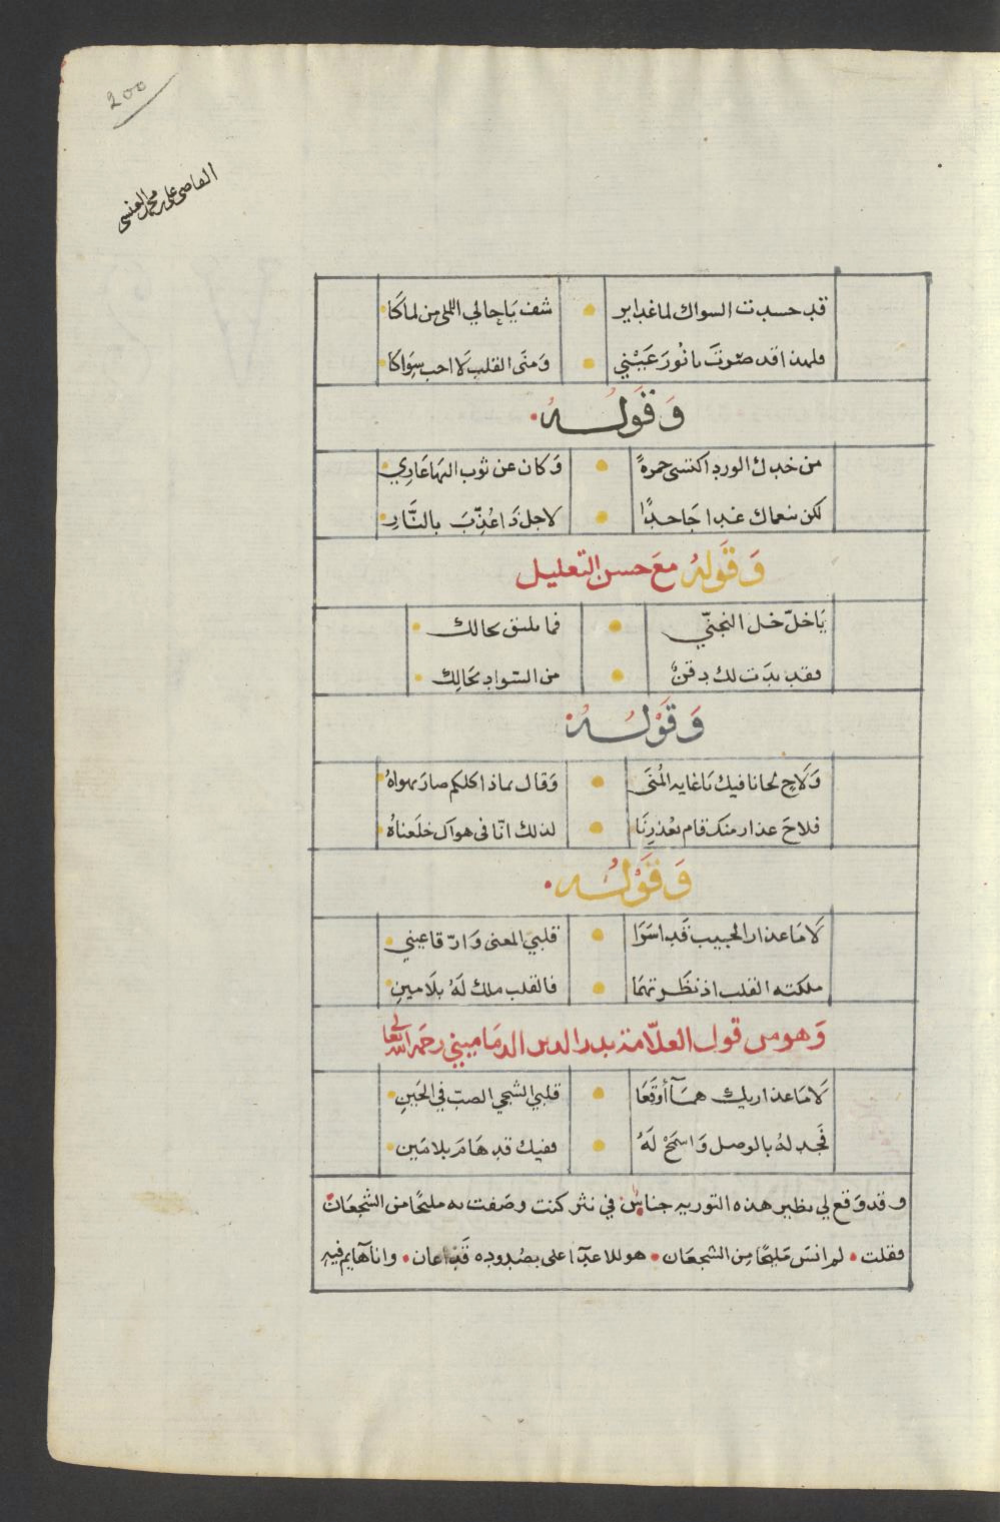 200
القاضي علي محمد العنسي
قد حسدت السواك لما غدا ير شف يا حالي اللمى من لماكا
فلهذا قد صرت يا نور عيني ومنى القلب لا احب سواكا
وقوله
من خدك الورد اكتسى حمرة وكان عن ثوب البها عاري
لكن نعماك غدا جاحدا لاجل ذا عذب بالنار
وقوله مع حسن التعليل
يا خل خل التجني فما يليق بحالك
فقد بدت لك دقن من السواد بحالك
وقوله
ولاح لحانا فيك يا غاية المنى وقال بماذا كلكم صار يهواه
فلاح عذار منك قام بعذرنا لذلك انا في هواك خلعناه
وقوله
لاما عذار الحبيب قد اسرا قلبي المعنى وارقا عيني
ملكته القلب اذ نظرتهما فالقلب ملك له بلامين
وهو من قول العلامة بدر الدين الدماميني رحمه الله تعالى
لاما عذاريك هما أوقعا قلبي الشجي الصب في الحين
فجد له بالوصل واسمح له ففيك قد هام بلامين
وقد وقع لي نظير هذه التوريه جناس في نثر كنت وصفت به مليحا من الشجعان
فقلت لم انس مليحا من الشجعان هو للاعدا على بصدوده قد اعان وانا هايم فيه